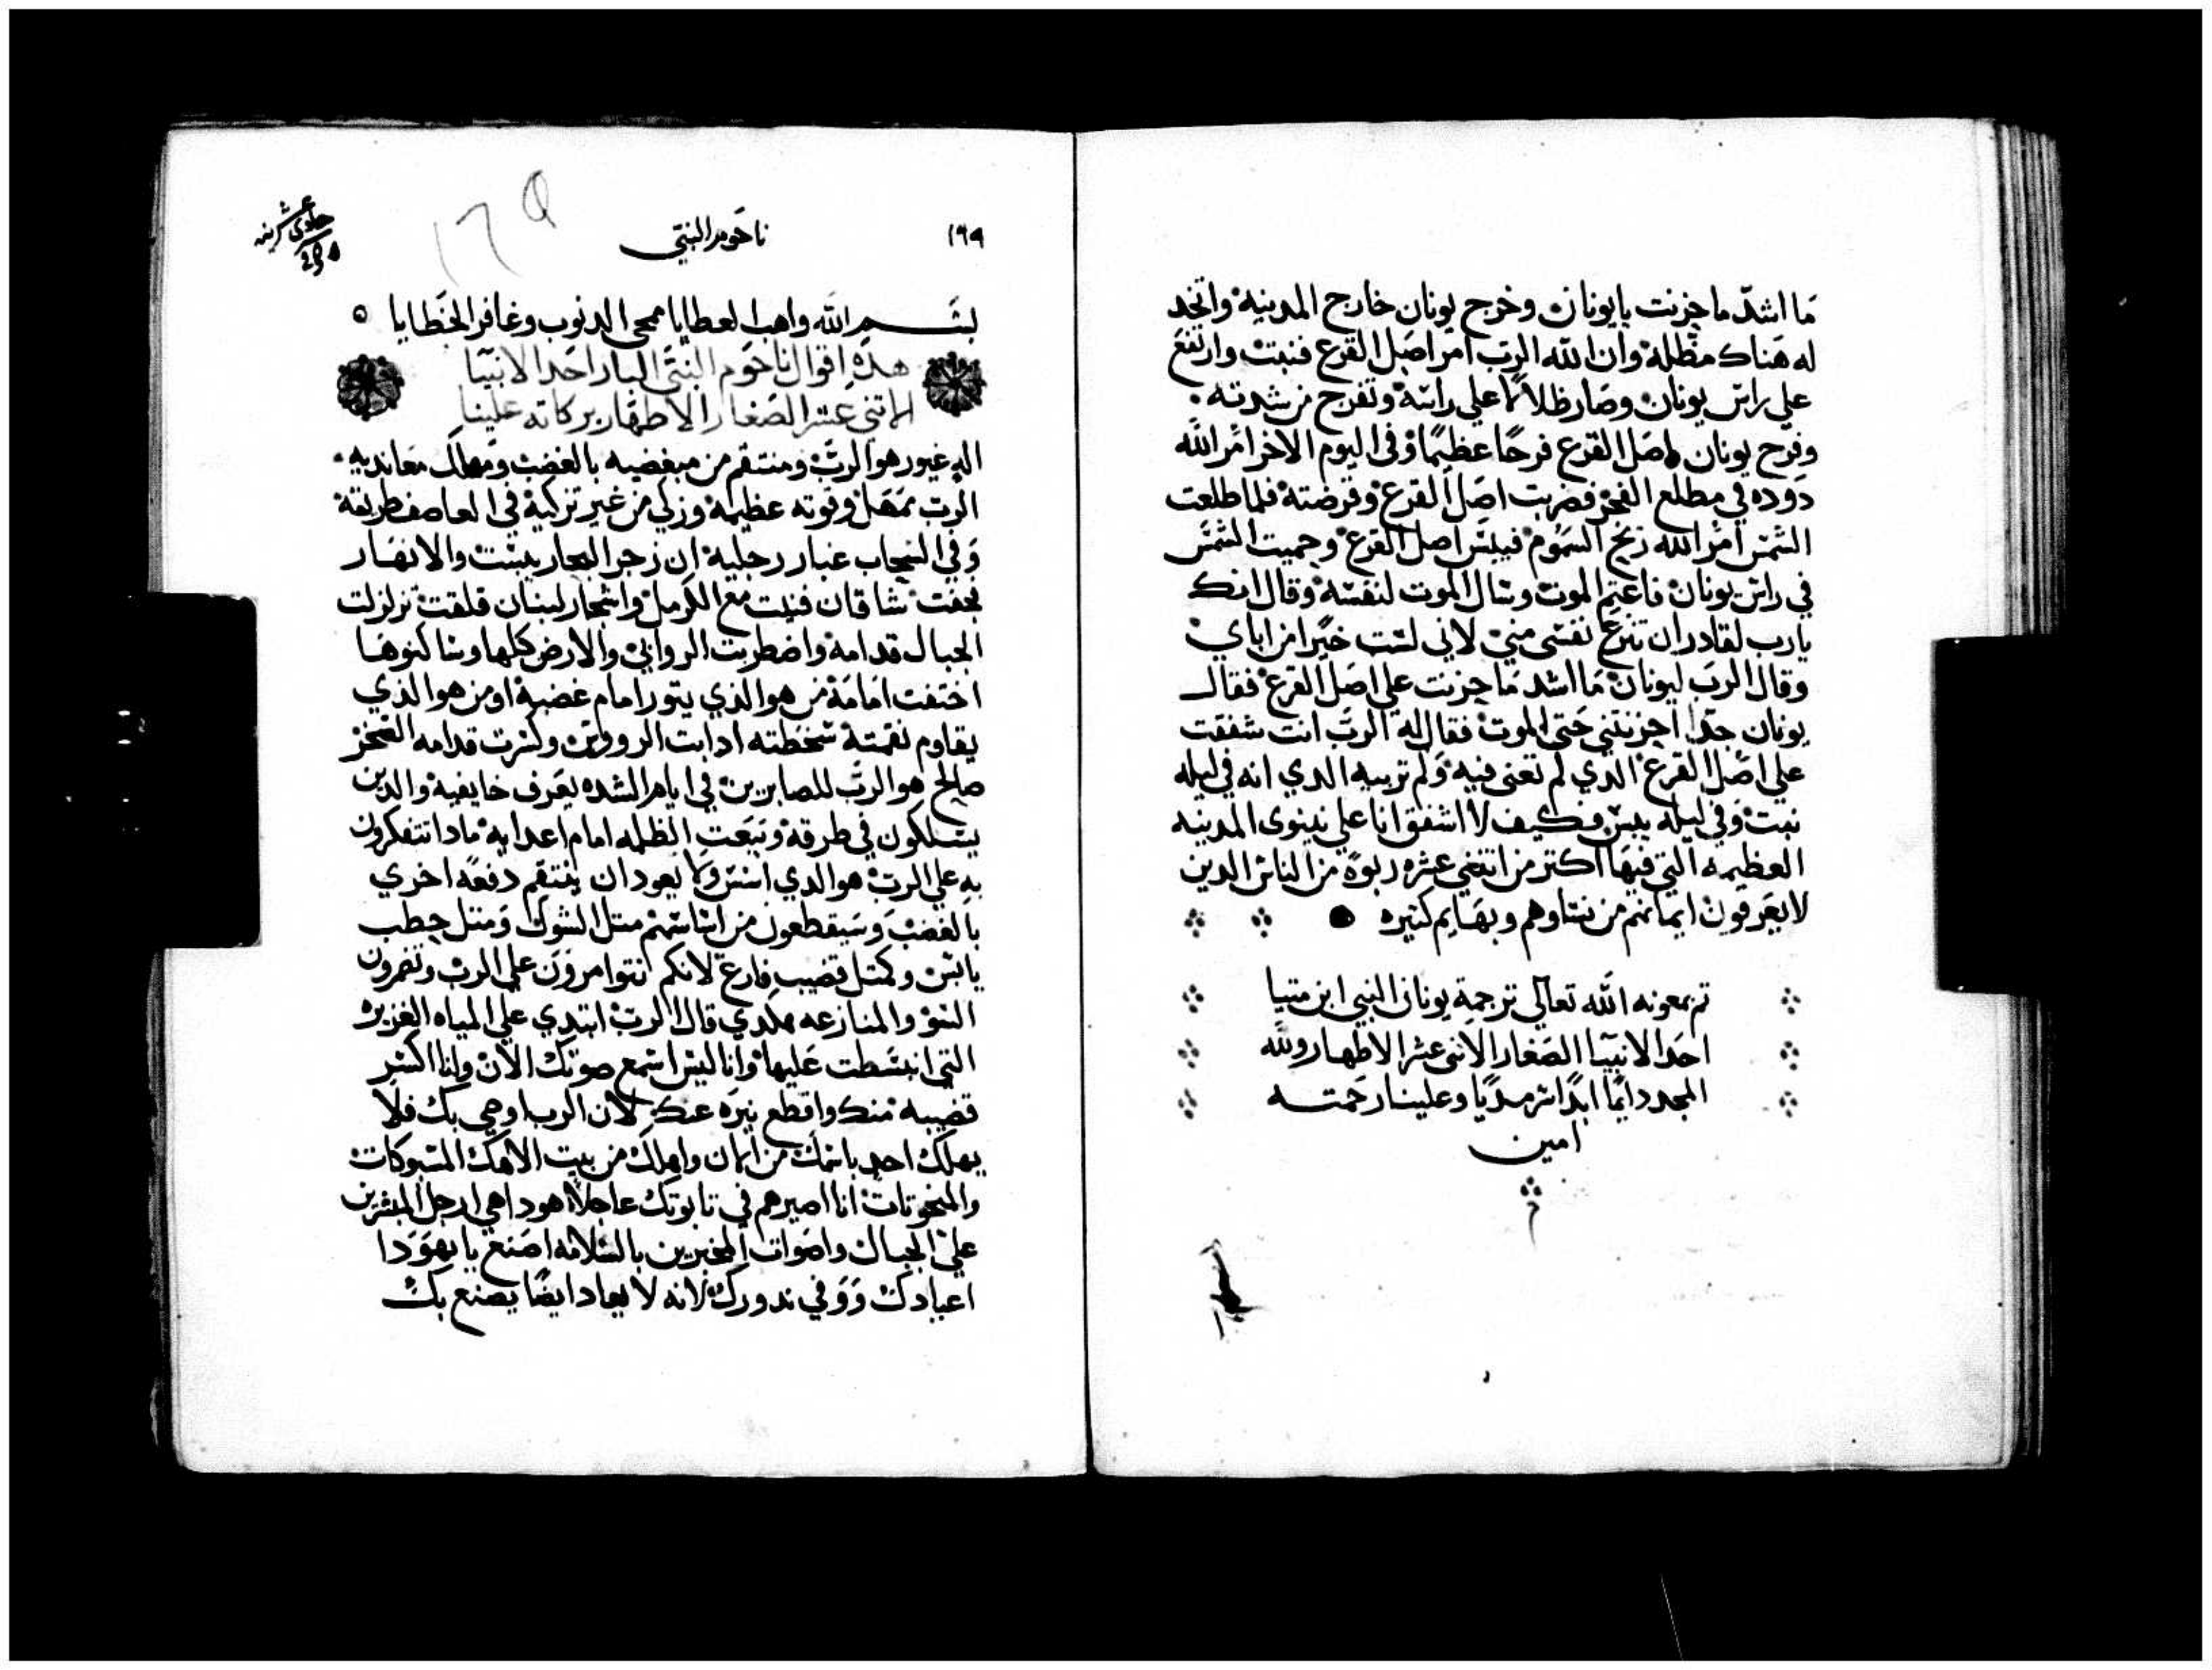 ما اشدّ ما حزنت يا يونان وخرج يونان خارج المدينة واتخد
له هناك مظلة وان الله الرب امر اصل القرع فنبتت وارتفع
علي راس يونان وصار ظلالًا علي راسه وتفرج من شدته
وفرح يونان باصل القرع فرحًا عظيمًا وفي اليوم الاخر امر الله
دوده في مطلع الفجر فضربت اصل القرع وقرضته فلما طلعت
الشمس امر الله ريح السموم فيبس اصل القرع وحميت الشمس
في راس يونان فاغتم الموت وسال الموت لنفسه وقال انك
يارب لقادر ان تنزع نفسي مني لاني لست خيرًا من اباي
وقال الرب ليونان ما اشد ما حزنت علي اصل القرع فقال
يونان جدًا احزنتني حتي الموت فقال له الرب انت شفقت
علي اصل القرع الدي لم تعنى فيه ولم تربيه الدي انه في ليله
نبت وفي ليله يبس فكيف لا اشفق انا علي نينوى المدينه
العظيمه التي فيها اكتر من اتني عشره ربوة من الناس الدين
لا يعرفون ايمانهم من نساوهم وبهايم كتيره
تم بمعونه الله تعالي ترجمة يونان النبي ابن متيا
احد الانبيا الصغار الاتنى عشر الاطهار ولله
المجد دايمًا ابدًا سرمديًا وعلينا رحمته
امين
١٦٩
ناحوم النبي
بسم الله واهب العطايا ممحى الدنوب وغافر الخطايا
هده اقوال ناحوم النبي البار احد الانبيا
الاتني عشر الصغار الاطهار بركاته علينا
اله غيور هو الرب ومنتقم من مبغضيه بالغضب ومهلك معانديه
الرب تمهل وقوته عظيمة وزكي من غير تزكية في العاصف طريقة
وفي السحاب غبار رجلية ان زجر البحار يبست والانهار
نجفت شاقان فنيت مع الكرمل واشجار لبنان قلقت تزلزلت
الجبال قدامه واضطربت الروابي والارض كلها وساكنوها
اختفت امامة من هو الذي يتور امام غضبة او من هو الذي
يقاوم نقمتة سخطته ادابت الرووس وكسرت قدامه الصخر
صالح هو الرب للصابرين في ايام الشده يعرف خايفيه والدين
يسلكون في طرقة وتبعت الظلمه امام اعدايه مادا تتفكرون
به علي الرب هو الدي اسس ولا يعود ان ينتقم دفعة اخري
بالغضب وسيقطعون من اساسهم متل الشوك ومتل حطب
يابس وكمتل قضيب فارغ لانكم انتوا مرون علي الرب وتضمرون
السو والمنازعه هكدي قال الرب ابتدي علي المياه الغزيره
التي انبسطت عليها وانا ليس اسمع صوتك الان وانا اكسر
قضيبه منك واقطع نيره عنك لان الرب اوصي بك فلا
يهلك احد باسمك من ايمان واهلك من بيت الاهك المسبوكات
والمنحوتات انا اصيرهم في تابوتك عاجلًا هودا هي ارجل المبشرين
علي الجبال واصوات المخبرين بالسلامه اصنع يا يهودا
اعيادك ووفي ندورك لانه لا يعاد ايضًا يصنع بك